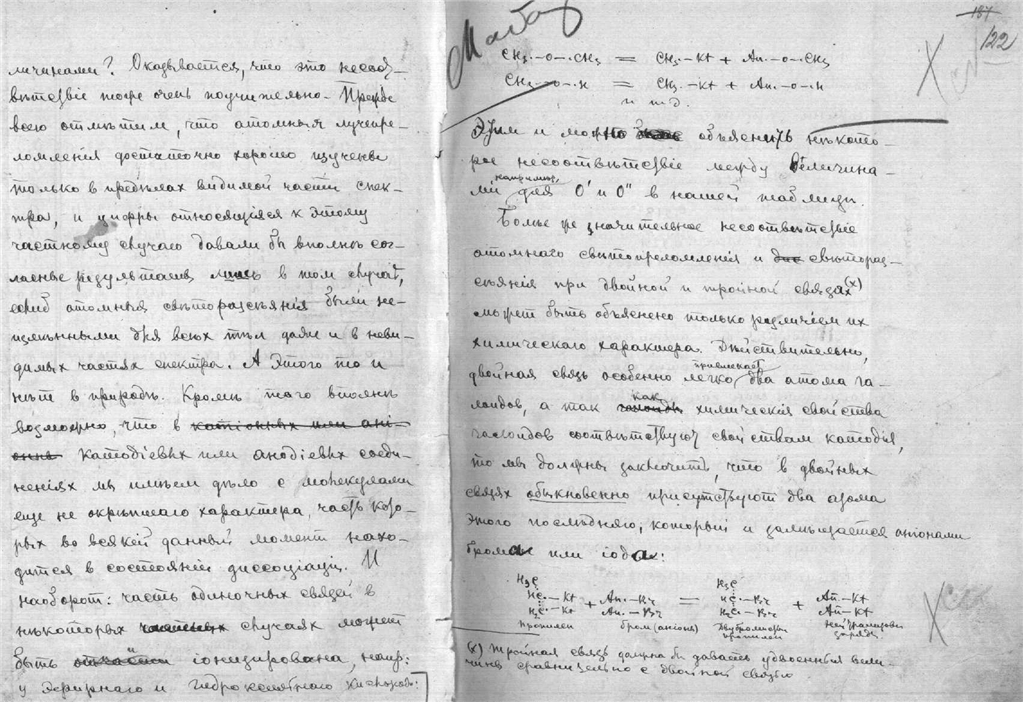 личинами? Оказывается, что это несоот-
вѣтствіе тоже очень поучительно. Прежде
всего отмѣтим, что атомныя лучепре-
ломленія достаточно хорошо изучены
только в предѣлах видимой части спек-
тра, и цифры относящіяся к этому
частному случаю давали бы вполнѣ сог-
ласные результаты лишь в том случаѣ,
если атомныя свѣторазсѣянія были не-
измѣнными для всѣх тѣл даже и в неви-
димых частях спектра. А этого то и
нѣт в природѣ. Кромѣ того вполнѣ
возможно, что в катіонных или ані-
онных катодіевых или анодіевых соеди-
неніях мы имѣем дѣло с молекулами
еще не окрѣпшаго характера, часть кото-
рых во всякій данный момент нахо-
дится в состояніи диссоціаціи. И
наоборот: часть одиночных связей в
нѣкоторых случаях может
быть іонизирована, напр:
у эфирнаго и гидроксильнаго кислорода:
122
CH3.–O–.CH3 = CH3.–Kt + An.–O–.CH3
CH3.–O–.H = CH3.–Kt + An.–O–.H
и т.д.
Этим и можно объяснить нѣкото-
рое несоотвѣтствіе между величина-
ми например, для O' и O'' в нашей таблицѣ.
Болѣе же значительное несоотвѣтствіе
атомнаго свѣтопреломленія и свѣтораз-
сѣянія при двойной и тройной связях(x)
может быть объяснено только различіем их
химическаго характера. Дѣйствительно,
двойная связь особенно легко присоединяет два атома га-
лоидов, а так как химическія свойства
галоидов соотвѣтствуют свойствам катодія,
то мы должны заключить, что в двойных
связях обыкновенно присутствуют два атома
этого послѣдняго, который и замѣщается аніонами
брома или іода:
H3C H3C
HC.–Kt + An.–Br = HC.–Br + An.–Kt
H2C.–Kt An.–Br H2C.–Br An.–Kt
пропилен бром (аніон) Двубромистый пропилен
(x) Тройная связь должна бы давать удвоенныя вели-
чины сравнительно с двойной связью